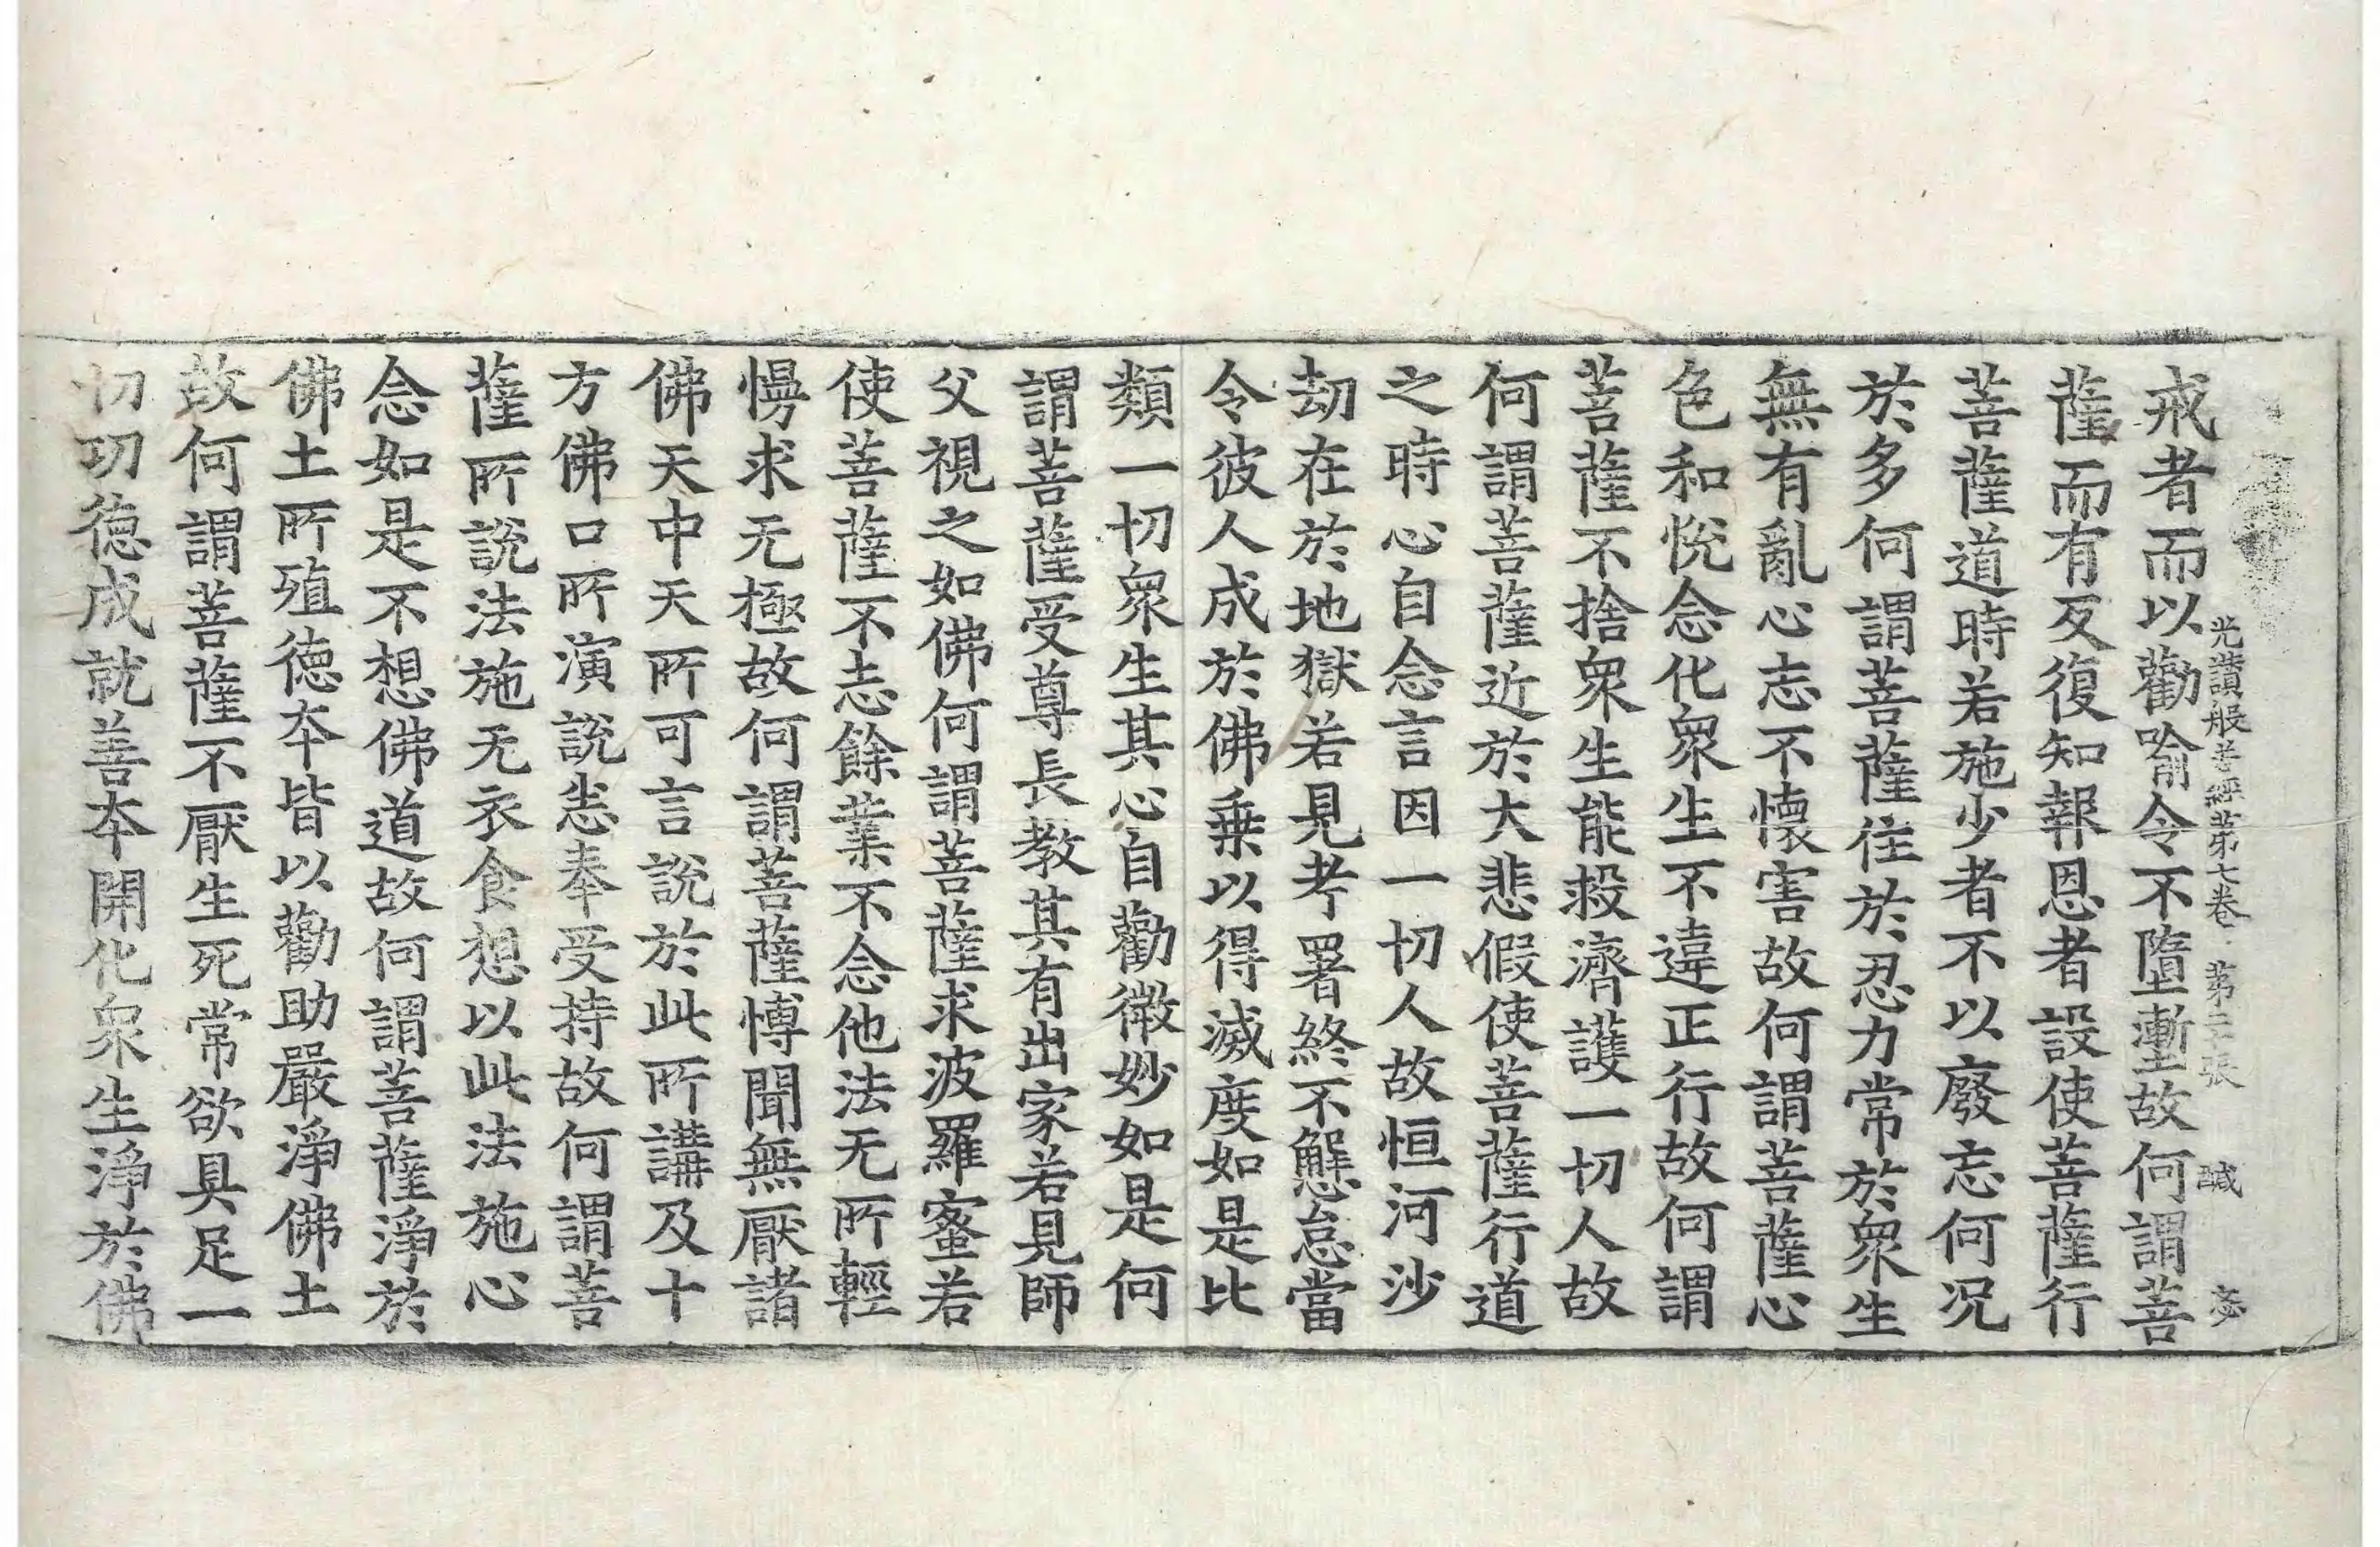 光讃般若經苐七卷 苐二張 鹹
戒者而以勸喻令不墮壍故何謂菩
薩而有反復知報恩者設使菩薩行
菩薩道時若施少者不以廢忘何況
於多何謂菩薩住於忍力常於衆生
無有亂心志不懷害故何謂菩薩心
色和悅念化衆生不違正行故何謂
菩薩不捨衆生能救濟護一切人故
何謂菩薩近於大悲假使菩薩行道
之時心自念言因一切人故恒河沙
劫在於地獄若見考署終不懈怠當
令彼人成於佛乗以得滅度如是比
類一切衆生其心自勸微妙如是何
謂菩薩受尊長教其有出家若見師
父視之如佛何謂菩薩求波羅蜜若
使菩薩不志餘業不念他法无所輕
慢求无極故何謂菩薩博聞無厭諸
佛天中天所可言說於此所講及十
方佛口所演說悉奉受持故何謂菩
薩所說法施无衣食想以此法施心
念如是不想佛道故何謂菩薩淨於
佛土所殖德夲皆以勸助嚴淨佛土
故何謂菩薩不厭生死常欲具足一
切功德成就善夲開化衆生淨於佛